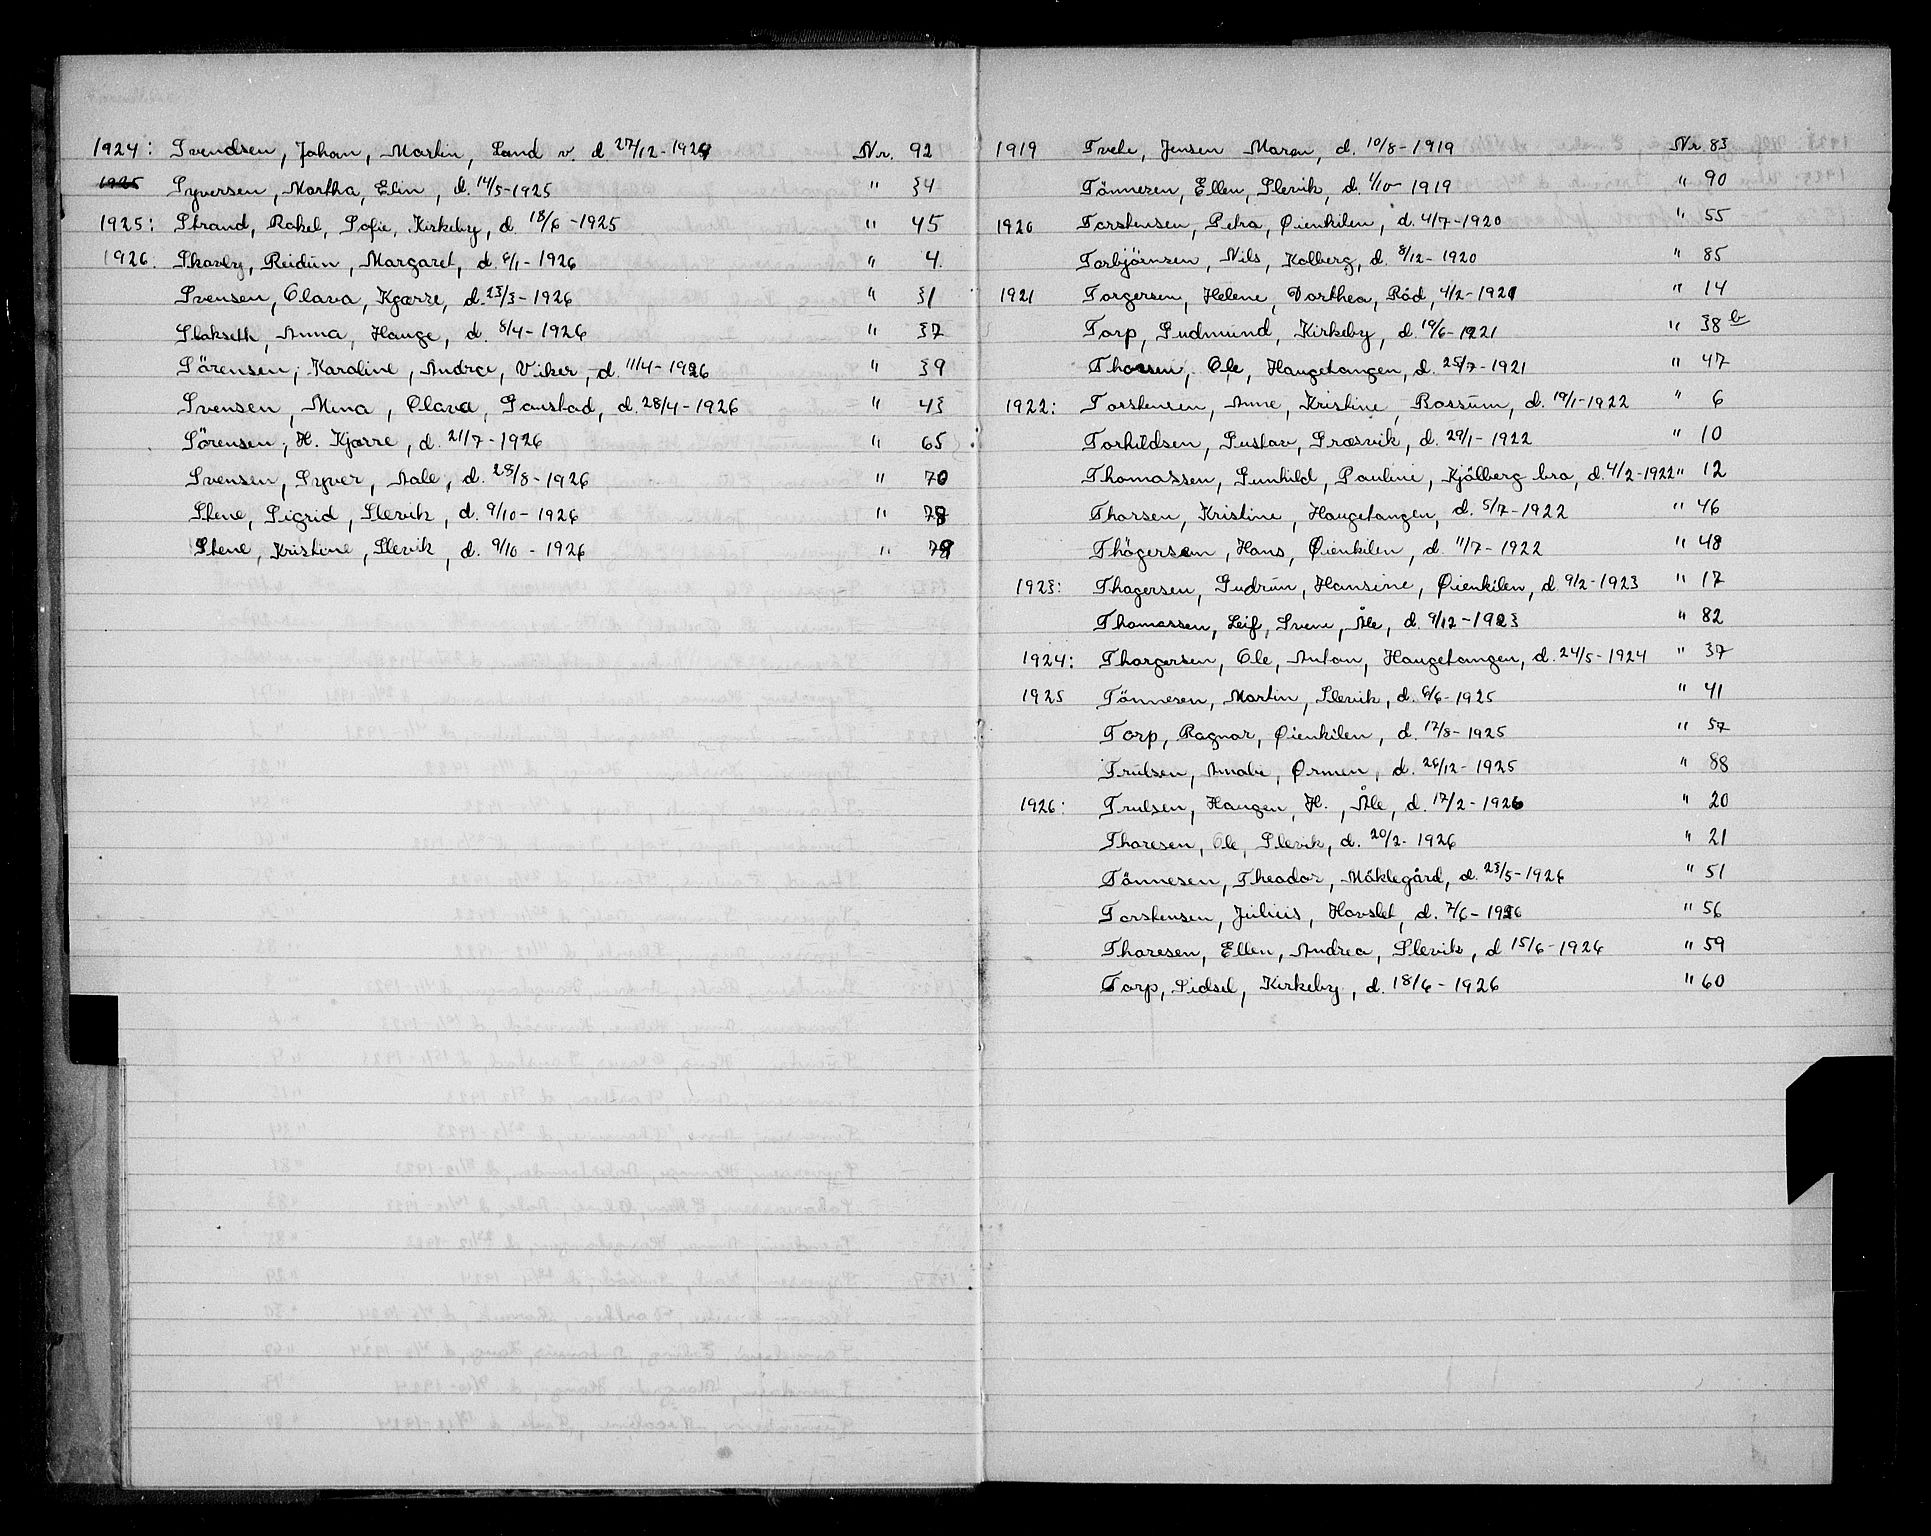 1924: Svendsen, Johan, Martin, Land v. d 27/12-1924 Nr. 92
1925 Syversen, Martha, Elin, d. 14/5-1925 " 34
1925: Strand, Rakel, Sofie, Kirkeby, d. 18/6-1925 " 45
1926. Skarby, Reidun, Margaret, d. 6/1-1926 " 4.
Svensen, Olava, Kjærre, d. 23/3-1926 " 31
Slakseth, Anna, Hauge, d. 8/4-1926 " 37
Sörensen, Karoline, Andrea, Viker, d. 11/4-1926 " 39
Svensen, Mina, Olava, Gaustad, d. 28/4-1926 " 43
Sörensen, H. Kjærre, d. 21/7-1926 " 65
Svensen, Syver, Aale, d. 28/8-1926 " 70
Stene, Sigrid, Slevik, d. 9/10-1926 " 78
Stene, Kristine, Slevik, d. 9/10-1926 " 79
1919 Tvete, Jensen Maren, d. 10/8-1919 Nr 83
Tönnesen, Ellen, Slevik, d. 1/10-1919 " 90
1920 Torstensen, Petra, Øienkilen, d. 4/7-1920 " 55
Torbjörnsen, Nils, Kolberg, d. 8/12-1920 " 85
1921 Torgersen, Helene, Dorthea, Röd, 4/2-1921 " 14
Torp, Gudmund, Kirkeby, d. 10/6-1921 " 38 b
Thorsen, Ole, Haugetangen, d. 25/7-1921 " 47
1922: Torstensen, Anne, Kristine, Rossum, d. 19/1-1922 " 6
Torhildsen, Gustav, Græsvik, d. 29/1-1922 " 10
Thomassen, Gunhild, Pauline, Kjölberg bro, d. 4/2-1922 " 12
Thorsen, Kristine, Haugetangen, d. 5/7-1922 " 46
Thögersen, Hans, Øienkilen, d. 11/7-1922 " 48
1923: Thøgersen, Gudrun, Hansine, Øienkilen, d 9/2-1923 " 17
Thomassen, Leif, Svene, Åle, d. 9/12-1923 " 82
1924: Thorgersen, Ole, Anton, Haugetangen, d. 24/5-1924 " 37
1925 Tönnesen, Martin, Slevik, d. 6/6-1925 " 41
Torp, Ragnar, Øienkilen, d. 17/8-1925 " 57
Trulsen, Amalie, Ørmen, d. 26/12-1925 " 88
1926: Trulsen, Haugen, H., Åle, d. 17/2-1926 " 20
Thoresen, Ole, Slevik, d. 20/2-1926 " 21
Tönnesen, Theodor, Möklegård, d. 23/5-1926 " 51
Torstensen, Julius, Havslet, d. 7/6-1926 " 56
Thoresen, Ellen, Andrea, Slevik, d 15/6-1926 " 59
Torp, Sidsel, Kirkeby, d. 18/6-1926 " 60